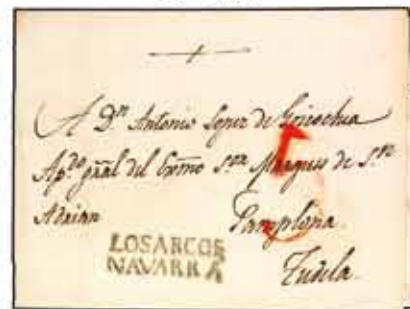 A Dn Antonio Lopez de Goicochea
Apdo gral del Exmo Sor Marques de Sn
Adrian
Pamplona.
Tudela.
LOSARCOS
NAVARRA